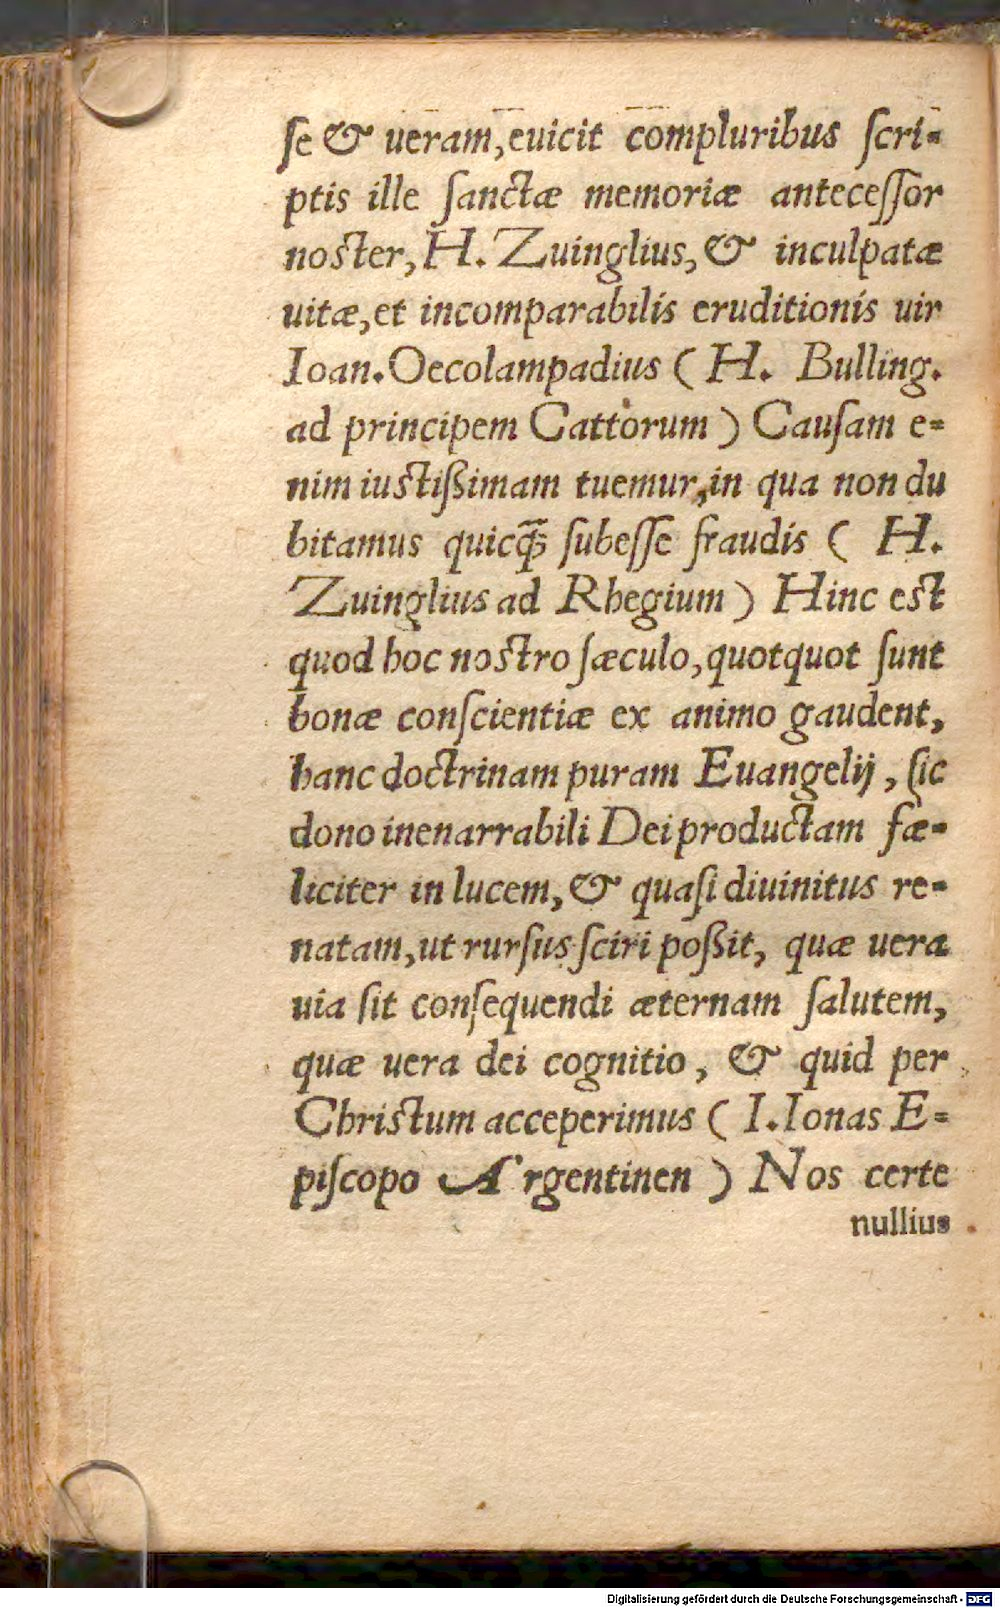 ſe & ueram, euicit compluribus ſcri-
ptis ille ſanctæ memoriæ anteceſſor
noſter, H. Zuinglius, & inculpatæ
uitæ, et incomparabilis eruditionis uir
Ioan. Oecolampadius ( H. Bulling.
ad principem Cattorum ) Cauſam e-
nim iuſtißimam tuemur, in qua non du
bitamus quicq̃ꝫ ſubeſſe fraudis ( H.
Zuinglius ad Rhegium ) Hinc eſt
quod hoc noſtro ſæculo, quotquot ſunt
bonæ conſcientiæ ex animo gaudent,
hanc doctrinam puram Euangelij, ſic
dono inenarrabili Dei productam fæ-
liciter in lucem, & quaſi diuinitus re-
natam, ut rurſus ſciri poßit, quæ uera
uia ſit conſequendi æternam ſalutem,
quæ uera dei cognitio, & quid per
Chriſtum acceperimus ( I. Ionas E-
piſcopo Argentinen ) Nos certe
nullius
Digitalisierung gefördert durch die Deutsche Forschungsgemeinschaft - DFG